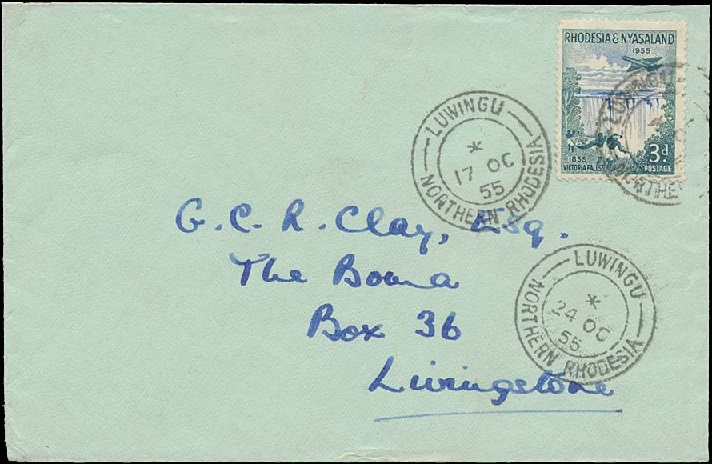 RHODESIA & NYASALAND
1955
1855
VICTORIA FALLS
3d
POSTAGE
LUWINGU
NORTHERN
LUWINGU
*
17 OC
55
NORTHERN RHODESIA
G. C. R. Clay, Esq.
The Boma
Box 36
Livingstone
LUWINGU
*
24 OC
55
NORTHERN RHODESIA